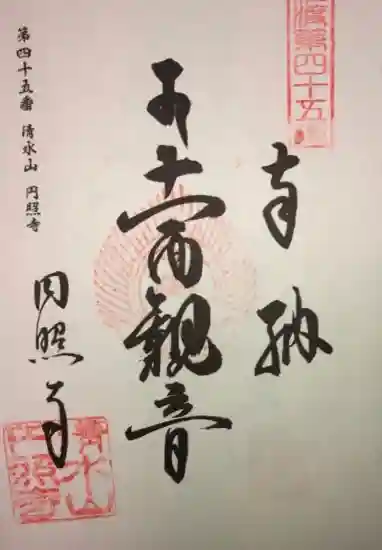 奉納
十一面観音
円照寺
第四十五番 清水山 円照寺
第四十五
清水山
円照寺